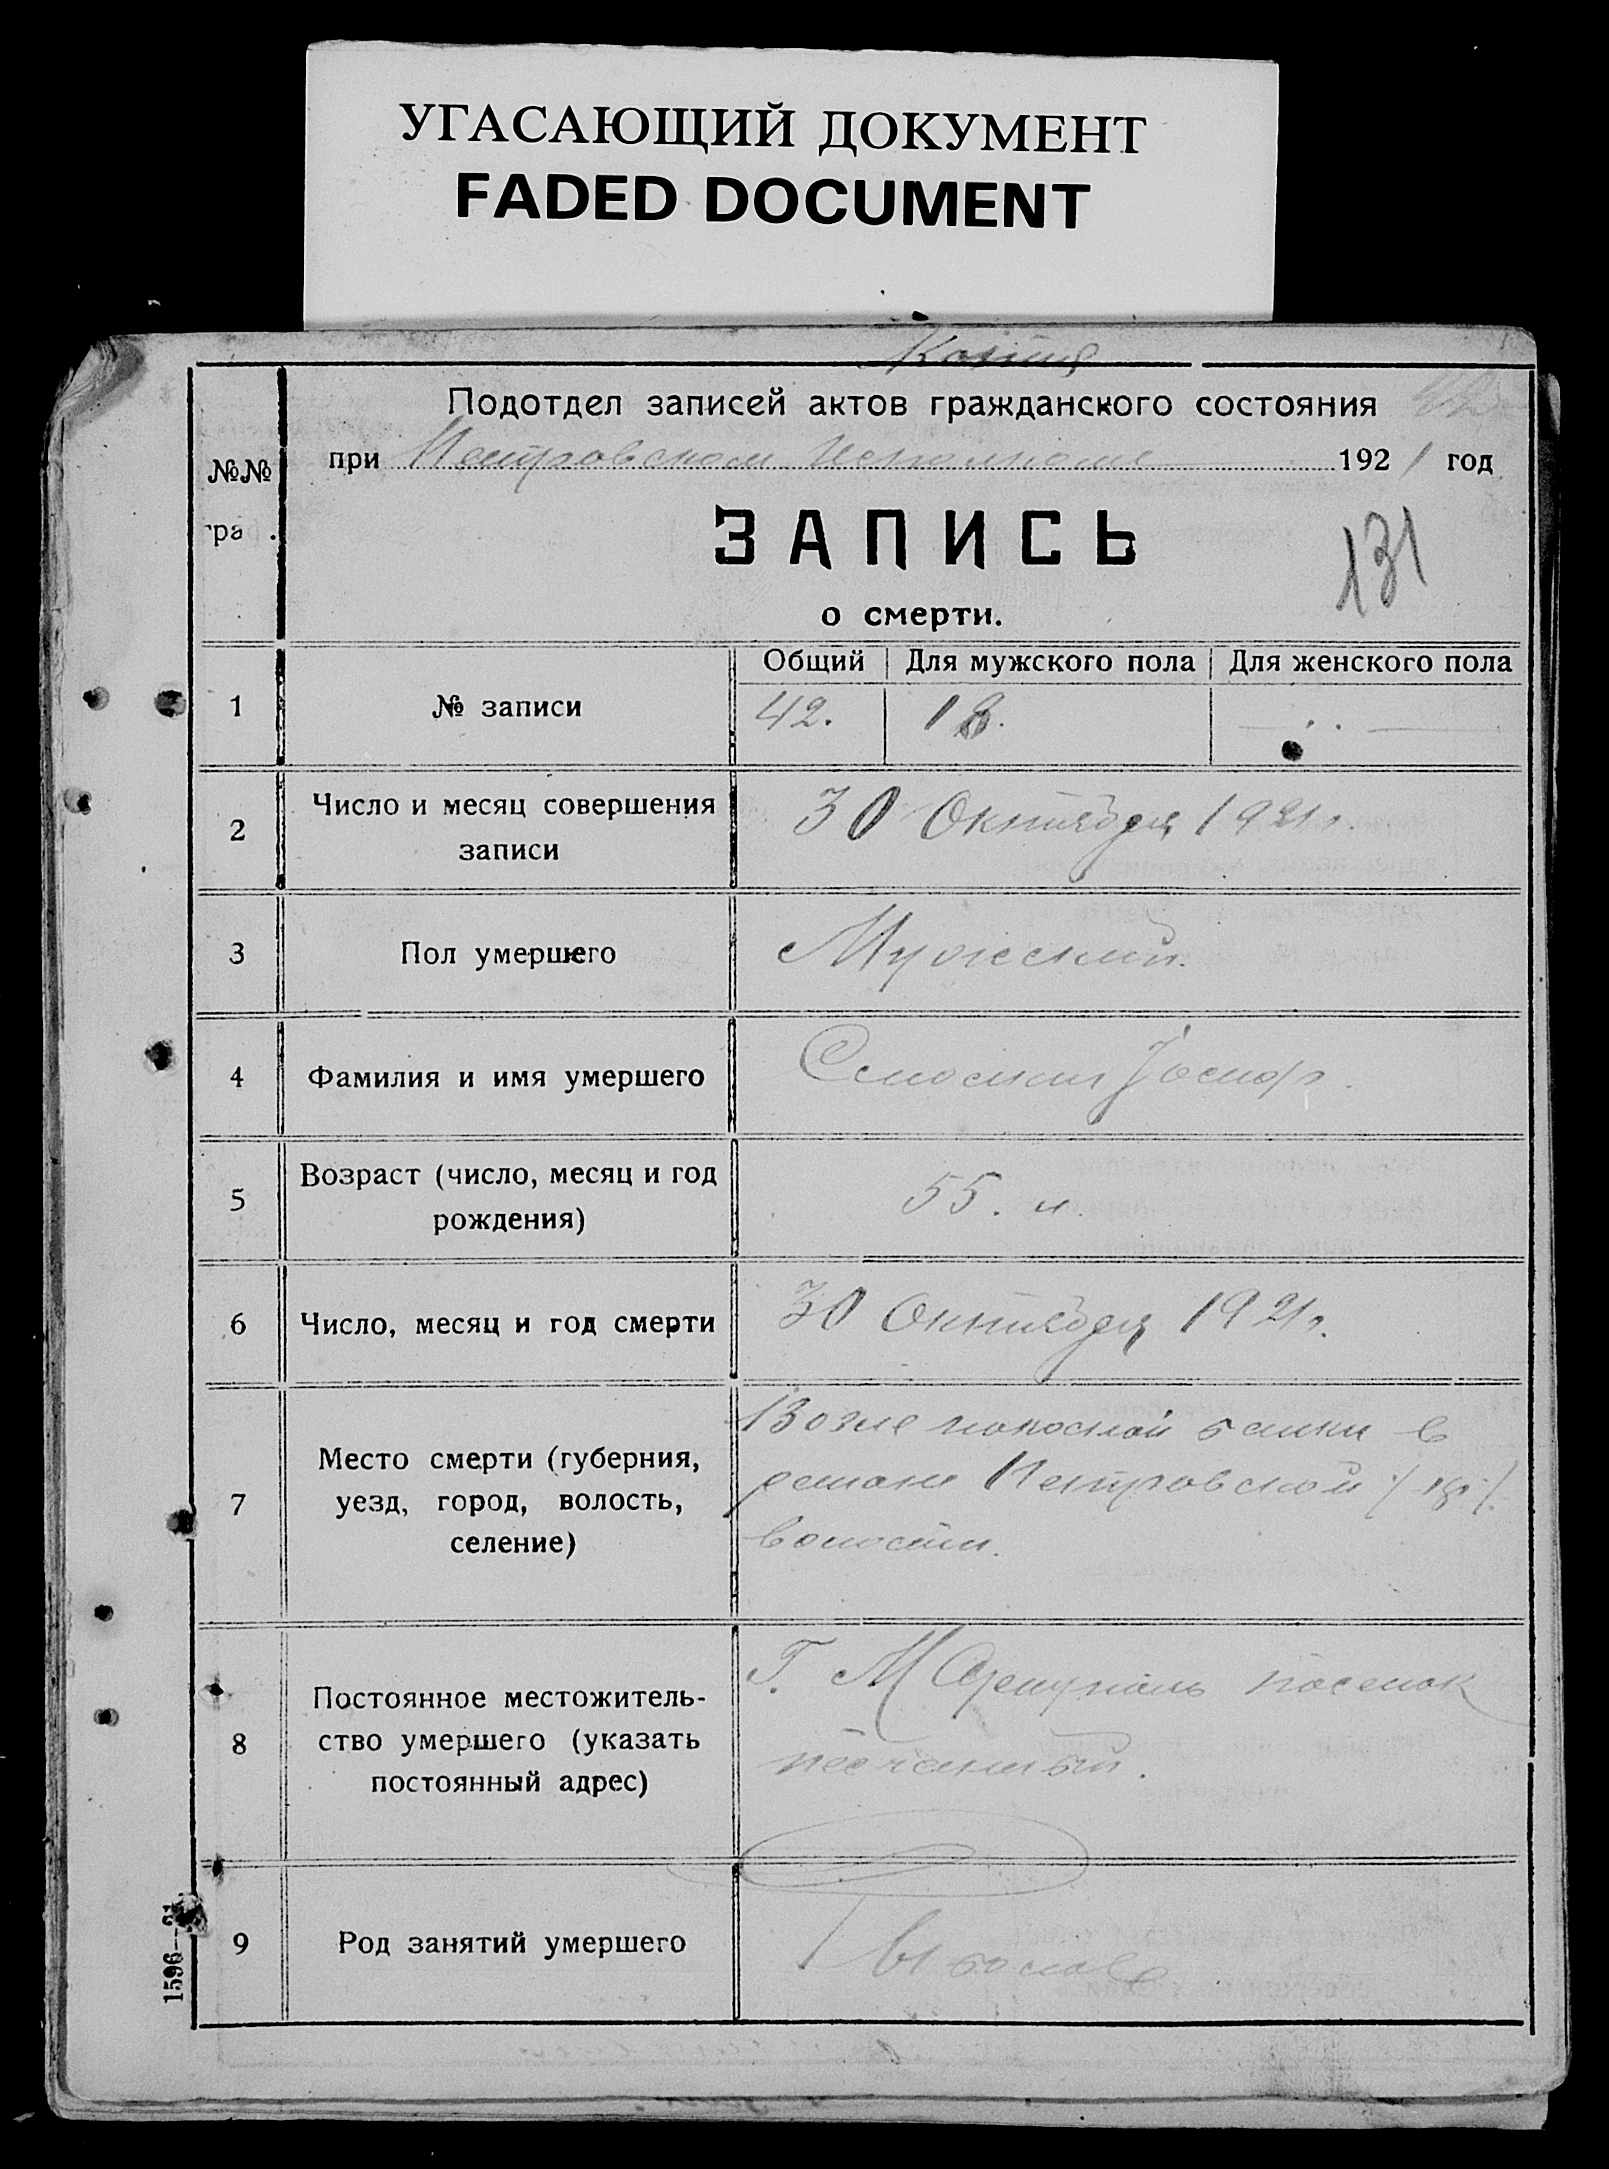 УГАСАЮЩИЙ ДОКУМЕНТ
FADED DOCUMENT
Копия
Подотдел записей актов гражданского состояния
при Петровском Исполкоме 1921 год
№№
гра .
ЗАПИСЬ
131
о смерти.
Общий Для мужского пола Для женского пола
1 № записи 42. 18.
2 Число и месяц совершения
записи
30 Октября 1921 г.
3 Пол умершего Мужский.
4 Фамилия и имя умершего
5 Возраст (число, месяц и год
рождения)
55. л.
6 Число, месяц и год смерти 30 Октября 1921 г.
7 Место смерти (губерния,
уезд, город, волость,
селение)
Возле балки в
Петровской
волости.
8 Постоянное местожитель-
ство умершего (указать
постоянный адрес)
Г. Мариуполь поселок
песчаный.
9 Род занятий умершего
1596—21